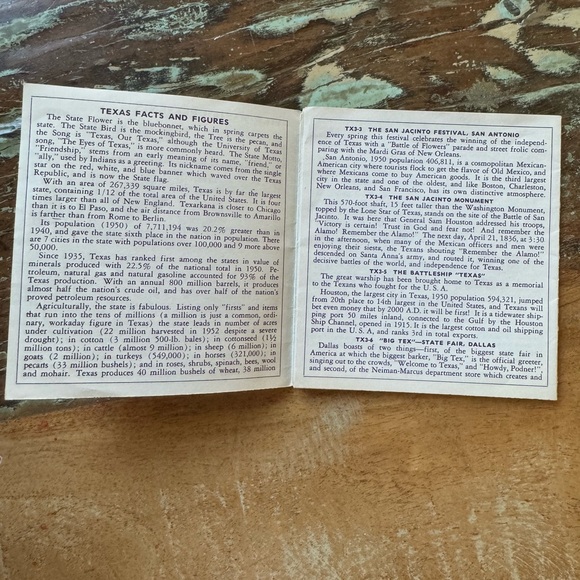 TEXAS FACTS AND FIGURES
The State Flower is the bluebonnet, which in spring carpets the
state. The State Bird is the mockingbird, the Tree is the pecan, and
the Song is "Texas, Our Texas," although the University of Texas
song, "The Eyes of Texas," is more commonly heard. The State Motto,
"Friendship," stems from an early meaning of its name, "friend," or
"ally," used by Indians as a greeting. Its nickname comes from the single
star on the red, white, and blue banner which waved over the Texas
Republic, and is now the State flag.
With an area of 267,339 square miles, Texas is by far the largest
state, containing 1/12 of the total area of the United States. It is four
times larger than all of New England. Texarkana is closer to Chicago
than it is to El Paso, and the air distance from Brownsville to Amarillo
is farther than from Rome to Berlin.
Its population (1950) of 7,711,194 was 20.2% greater than in
1940, and gave the state sixth place in the nation in population. There
are 7 cities in the state with populations over 100,000 and 9 more above
50,000.
Since 1935, Texas has ranked first among the states in value of
minerals produced with 22.5% of the national total in 1950. Pe-
troleum, natural gas and natural gasoline accounted for 93% of the
Texas production. With an annual 800 million barrels, it produces
almost half the nation's crude oil, and has over half of the nation's
proved petroleum resources.
Agriculturally, the state is fabulous. Listing only "firsts" and items
that run into the tens of millions (a million is a common, ordi-
nary, workaday figure in Texas) the state leads in number of acres
under cultivation (22 million harvested in 1952 despite a severe
drought); in cotton (3 million 500-lb. bales); in cottonseed (1½
million tons); in cattle (almost 9 million); in sheep (6 million); in
goats (2 million); in turkeys (549,000); in horses (321,000); in
pecarts (33 million bushels); and in roses, shrubs, spinach, bees, wool
and mohair. Texas produces 40 million bushels of wheat, 38 million
TX3-3 THE SAN JACINTO FESTIVAL, SAN ANTONIO
Every spring this festival celebrates the winning of the independ-
ence of Texas with a "Battle of Flowers" parade and street frolic com-
paring with the Mardi Gras of New Orleans.
San Antonio, 1950 population 406,811, is a cosmopolitan Mexican-
American city where tourists flock to get the flavor of Old Mexico, and
where Mexicans come to buy American goods. It is the third largest
city in the state and one of the oldest, and like Boston, Charleston,
New Orleans, and San Francisco, has its own distinctive atmosphere.
TX3-4 THE SAN JACINTO MONUMENT
This 570-foot shaft, 15 feet taller than the Washington Monument,
topped by the Lone Star of Texas, stands on the site of the Battle of San
Jacinto. It was here that General Sam Houston addressed his troops,
"Victory is certain! Trust in God and fear not! And remember the
Alamo! Remember the Alamo!" The next day, April 21, 1836, at 3:30
in the afternoon, when many of the Mexican officers and men were
enjoying their siesta, the Texans shouting "Remember the Alamo!"
descended on Santa Anna's army, and routed it, winning one of the
decisive battles of the world, and independence for Texas.
TX3-5 THE BATTLESHIP "TEXAS"
The great warship has been brought home to Texas as a memorial
to the Texans who fought for the U. S. A.
Houston, the largest city in Texas, 1950 population 594,321, jumped
from 20th place to 14th largest in the United States, and Texans will
bet even money that by 2000 A.D. it will be first! It is a tidewater ship-
ping port 50 miles inland, connected to the Gulf by the Houston
Ship Channel, opened in 1915. It is the largest cotton and oil shipping
port in the U. S. A, and ranks 3rd in total exports.
TX3-6 "BIG TEX"—STATE FAIR, DALLAS
Dallas boasts of two things—first, of the biggest state fair in
America at which the biggest barker, "Big Tex," is the official greeter,
singing out to the crowds, "Welcome to Texas," and "Howdy, Podner!",
and second, of the Neiman-Marcus department store which creates and